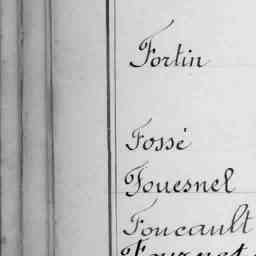 Fortin
Fossé
Fouesnel
Foucault
Fournet